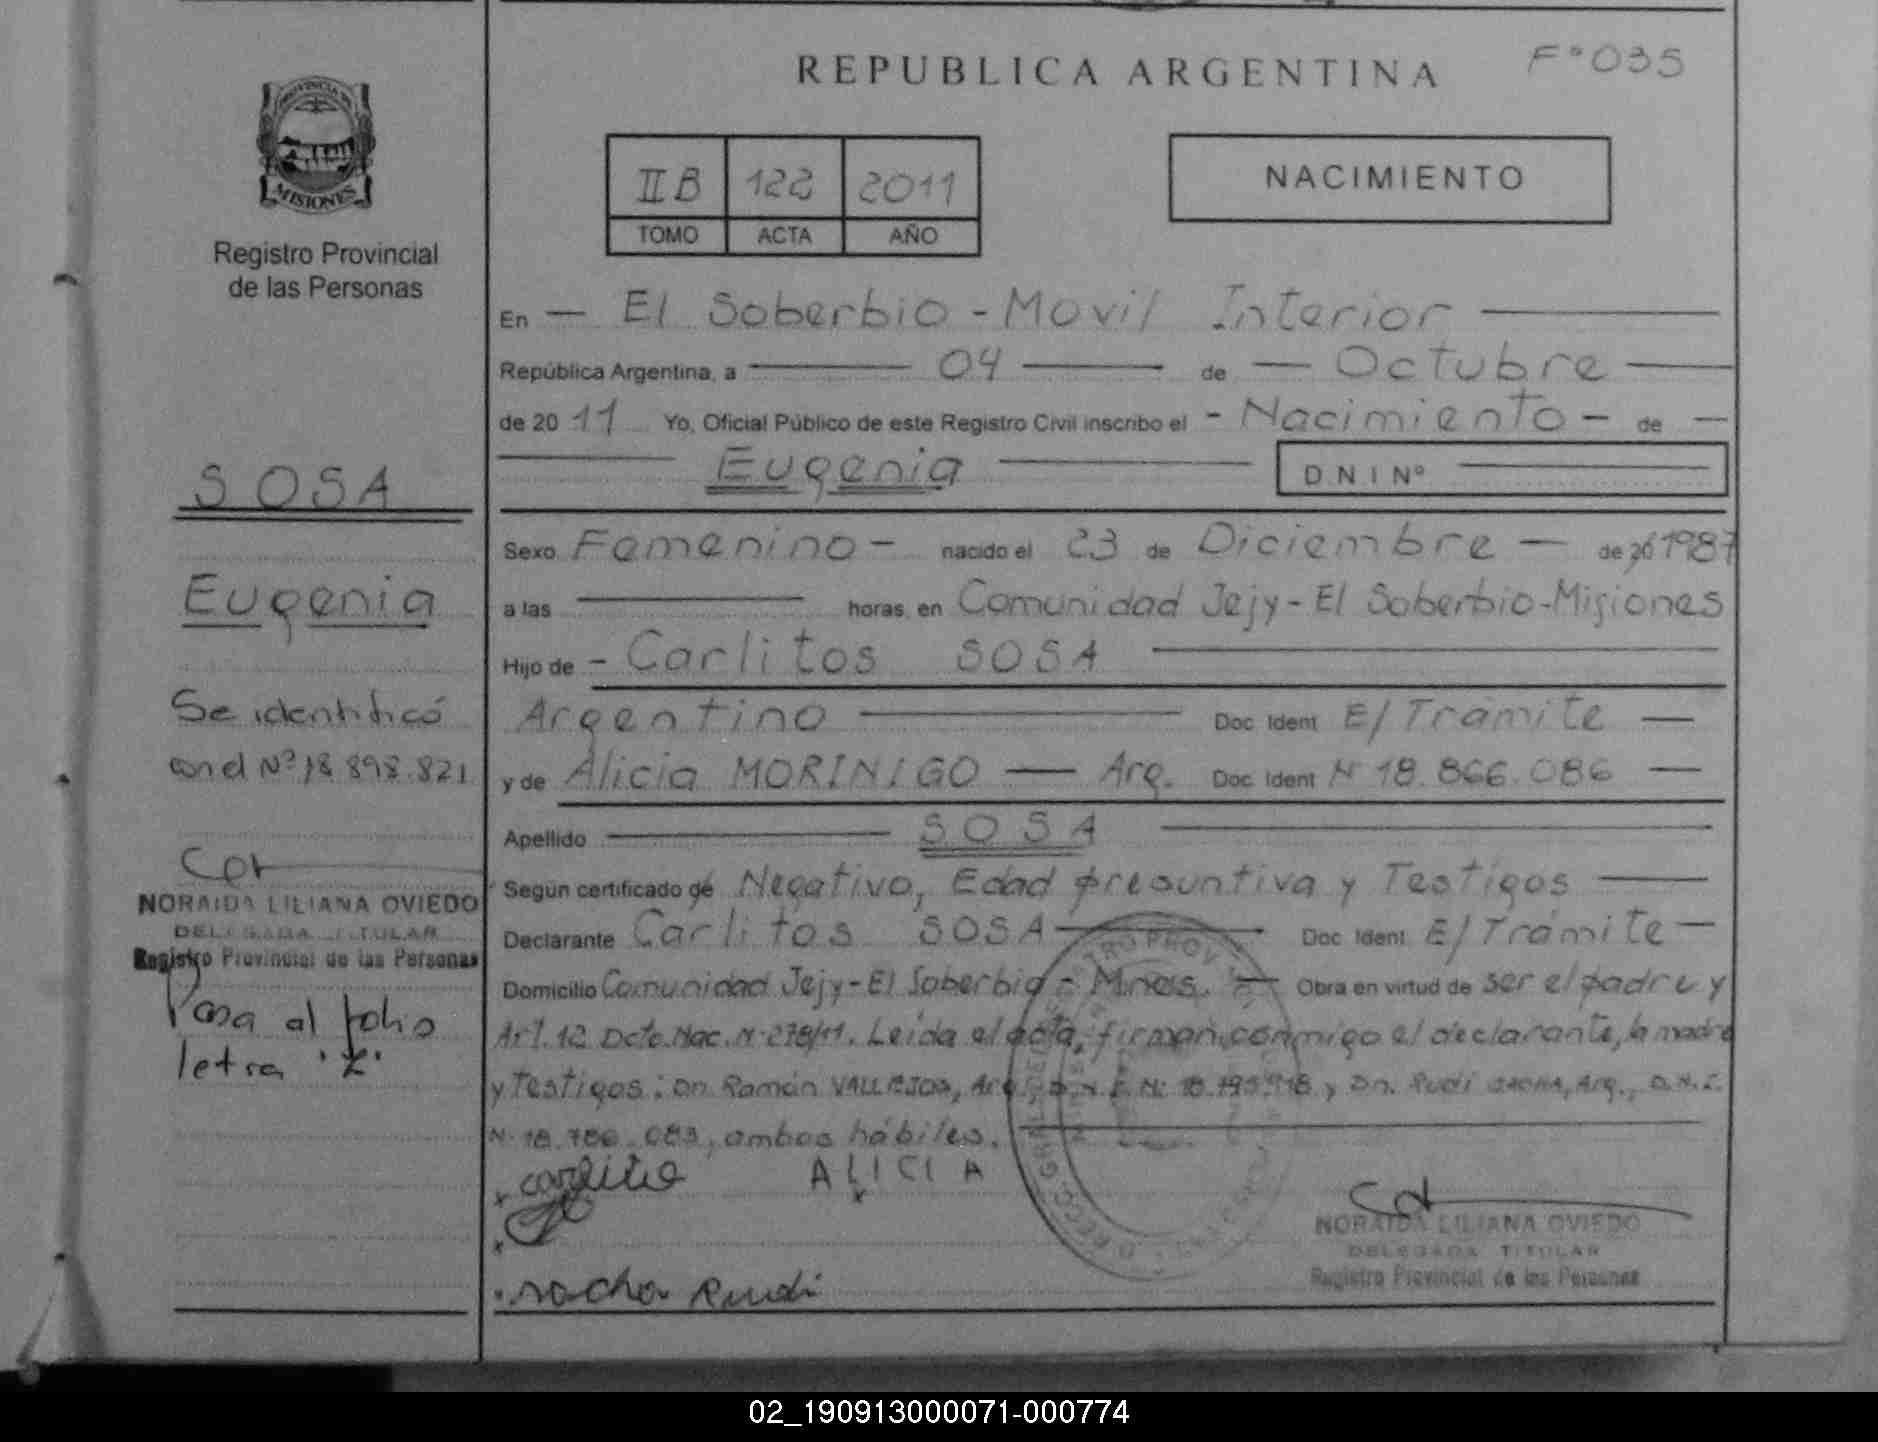 REPUBLICA ARGENTINA
Fº035
PROVINCIA DE
MISIONES
Registro Provincial
de las Personas
II B 122 2011
TOMO ACTA AÑO
NACIMIENTO
En — El Soberbio - Movil Interior
República Argentina, a 04 de — Octubre
de 20 11 Yo, Oficial Público de este Registro Civil inscribo el - Nacimiento - de
Eugenia D N I Nº
SOSA
Eugenia
Se identificó
con el Nº 18 898.821
NORAIDA LILIANA OVIEDO
DELEGADA TITULAR
Registro Provincial de las Personas
Pasa al folio
letra "Z"
Sexo Femenino - nacido el 23 de Diciembre — de 20 1987
a las horas, en Comunidad Jejy - El Soberbio - Misiones
Hijo de - Carlitos SOSA
Argentino Doc Ident E/ Trámite —
y de Alicia MORINIGO — Arg. Doc Ident Nº 18.866.086 —
Apellido SOSA
Según certificado de Negativo, Edad presuntiva y Testigos
Declarante Carlitos SOSA Doc Ident E/ Trámite —
Domicilio Comunidad Jejy - El Soberbio - Mnes. — Obra en virtud de ser el padre y
Art. 12 Dcto. Nac. Nº 278/11. Leída el acta, firman conmigo el declarante, la madre
y Testigos: Dn. Ramón VALLEJOS, Arg., D.N.I. Nº y Dn. Rudi Arg., D.N.I.
Nº 18.780.083, ambos hábiles.
carlito ALICIA
Rudi
NORAIDA LILIANA OVIEDO
DELEGADA TITULAR
Registro Provincial de las Personas
02_190913000071-000774